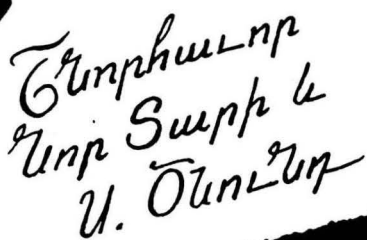 Շնորհաւոր
Նոր Տարի և
Ս. Ծնունդ